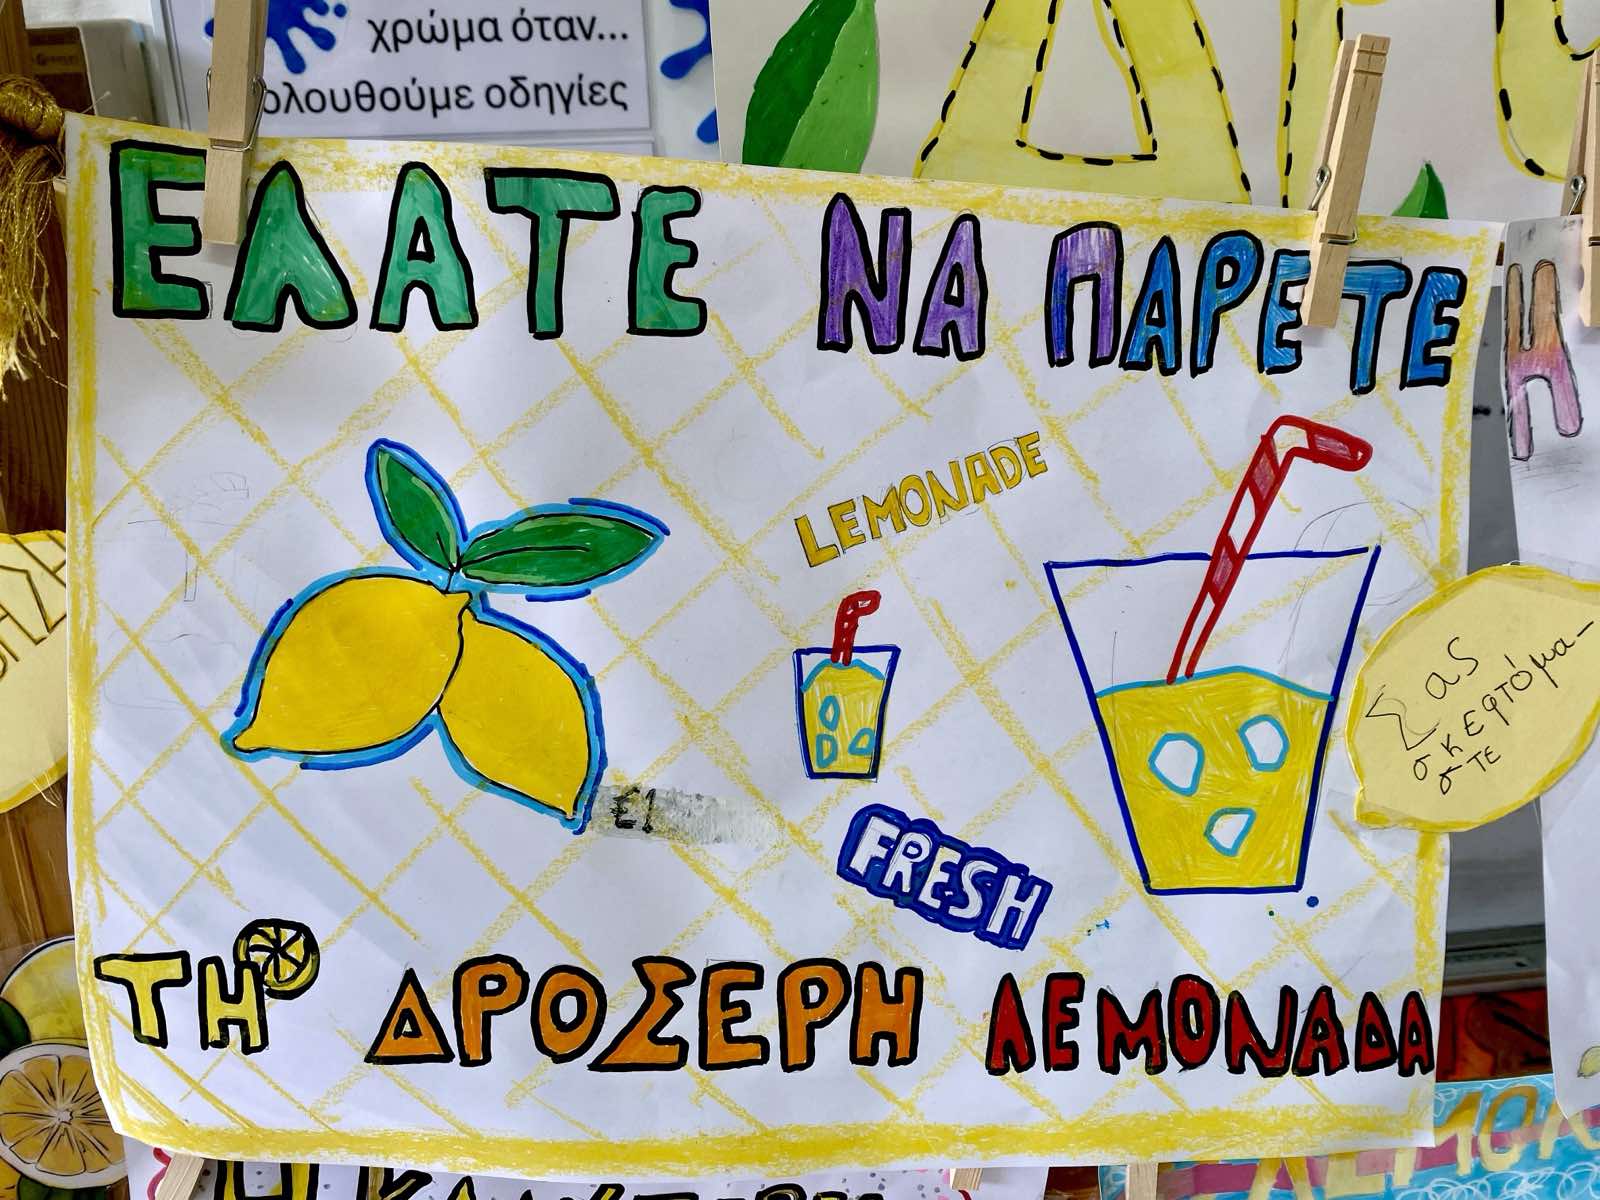 χρώμα όταν...
οδηγίες
ΕΛΑΤΕ ΝΑ ΠΑΡΕΤΕ
LEMONADE
Σας
σκεφτόμα-
στε
€1
FRESH
ΤΗ ΔΡΟΣΕΡΗ ΛΕΜΟΝΑΔΑ
Η